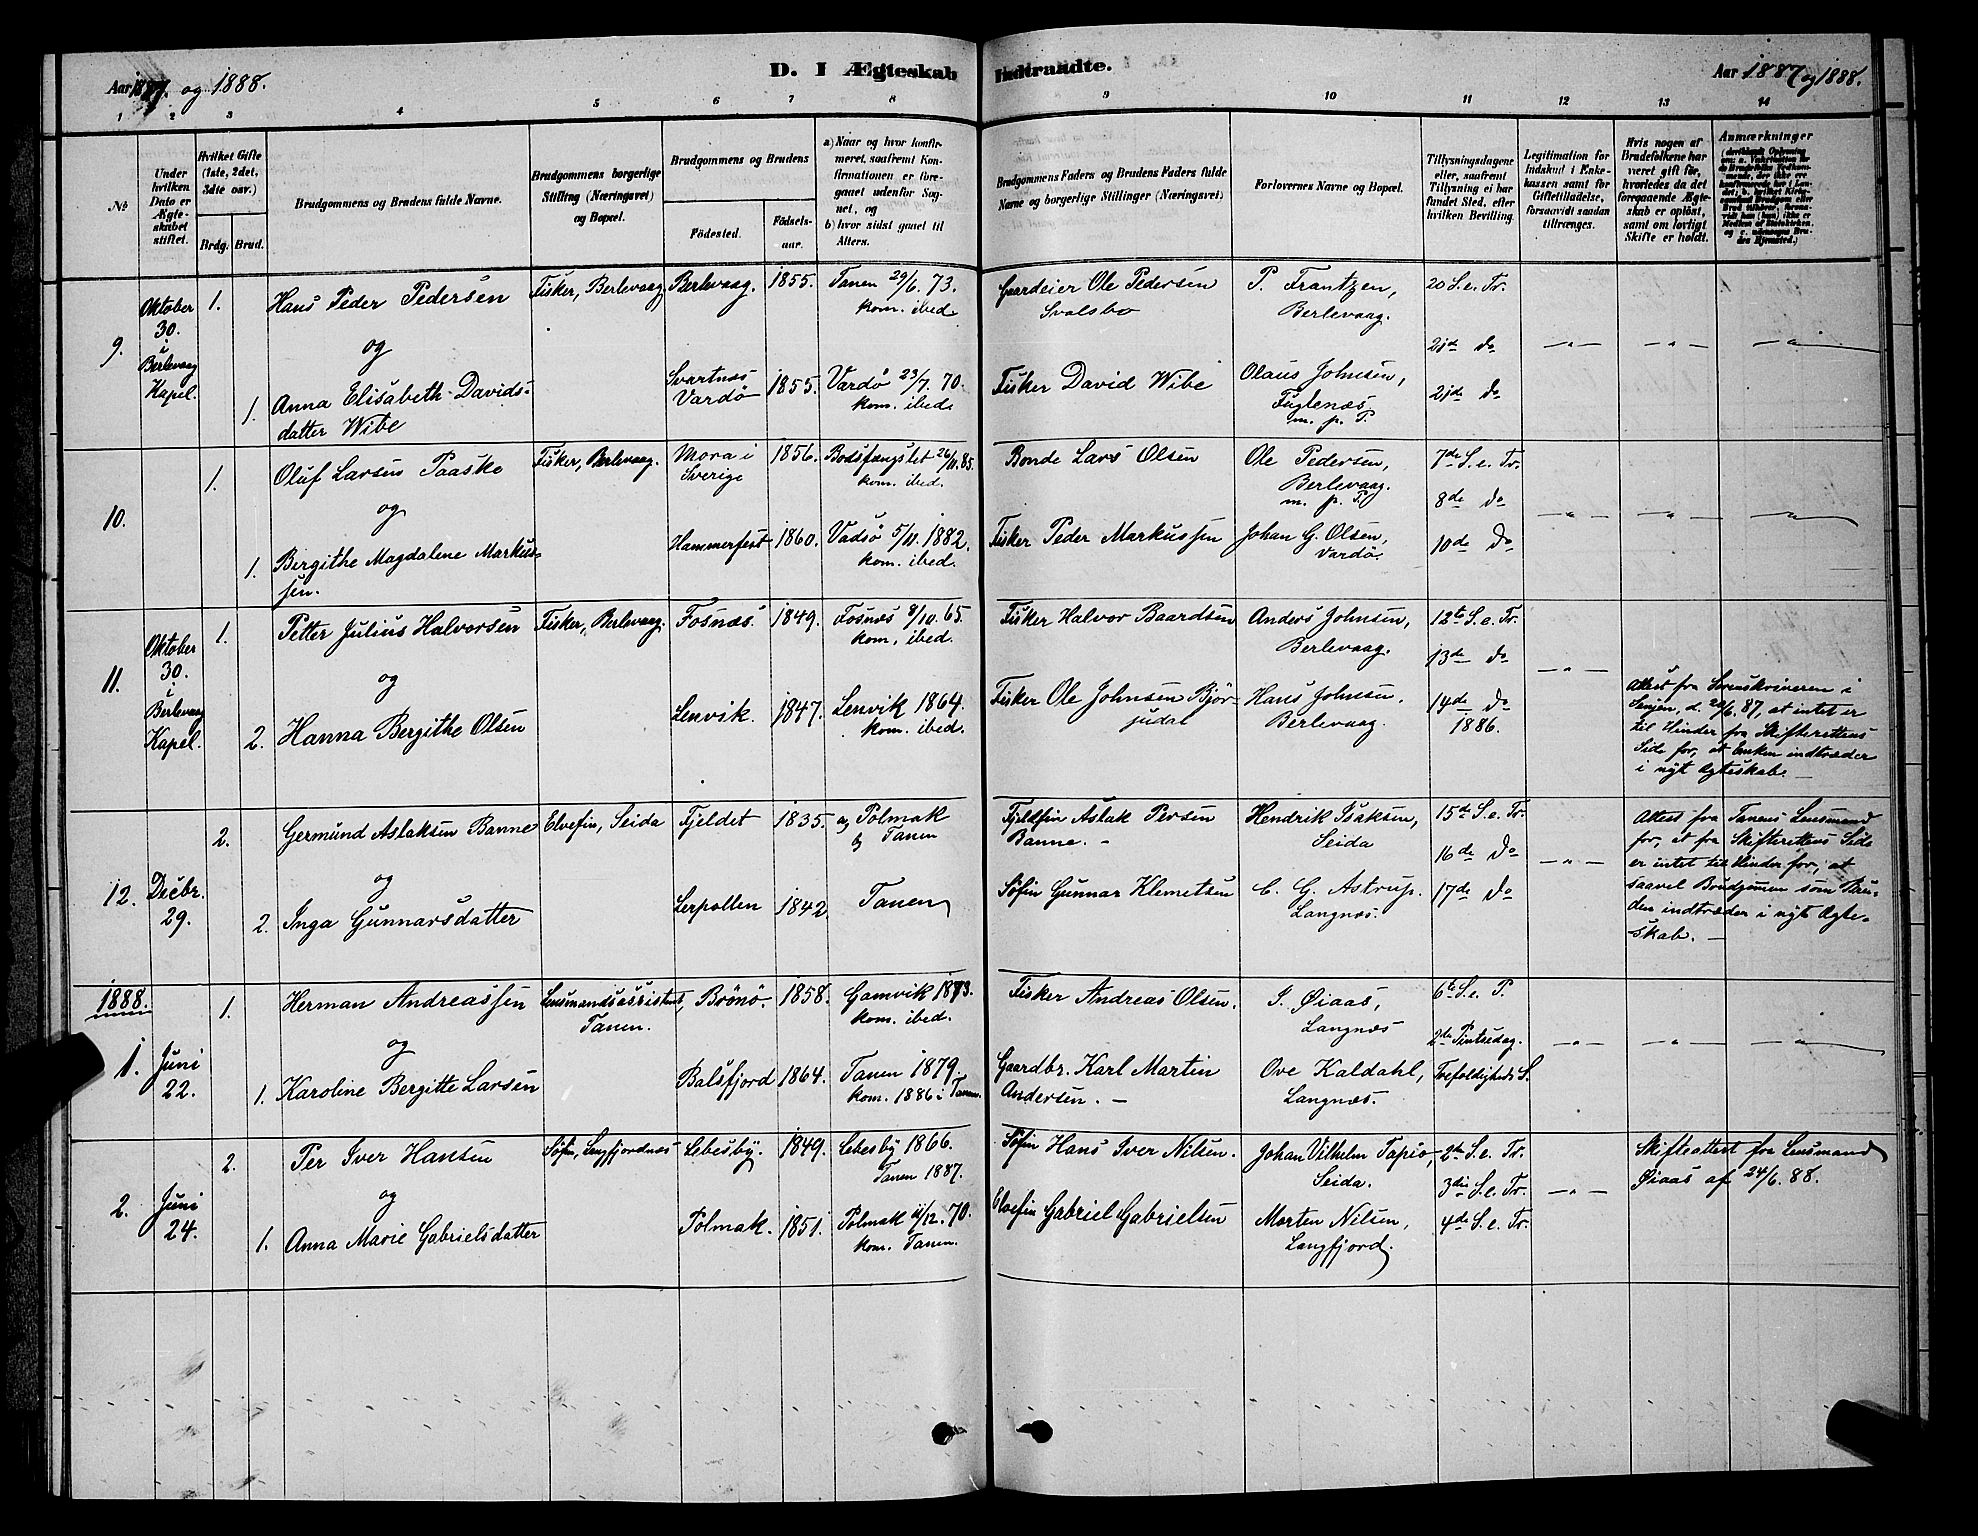 Aar 1887. og 1888.
D. I Ægteskab Indtraadte.
Aar 1887 og 1888.
1 2 3 4 5 6 7 8 9 10 11 12 13 14
№
Under hvilken Dato er Ægteskabet stiftet.
Hvilket Gifte (1ste, 2det, 3die osv.)
Brdg. Brud.
Brudgommens og Brudens fulde Navne.
Brudgommens borgerlige Stilling (Næringsvei) og Bopæl.
Brudgommens og Brudens
Fødested. Fødselsaar.
a) Naar og hvor konfirmeret, saafremt Konfirmationen er foregaaet udenfor Sognet, og
b) hvor sidst gaaet til Alters.
Brudgommens Faders og Brudens Faders fulde Navne og borgerlige Stillinger (Næringsvei)
Forlovernes Navne og Bopæl.
Tillysningsdagene eller, saafremt Tillysning ei har fundet Sted, efter hvilken Bevilling.
Legitimation for Indskud i Enkekassen samt for Giftetilladelse, forsaavidt saadan tiltrænges.
Hvis nogen af Brudefolkene har været gift før, hvorledes da det foregaaende Ægteskab er opløst, samt om lovligt Skifte er holdt.
Anmærkninger
9. Oktober 30. i Berlevaag Kapel.
1. Hans Peder Pedersen
Fisker, Berlevaag
Berlevaag. 1855. Tanen 29/6. 73. kom. ibed.
Gaardeier Ole Pedersen Svalsbo
P. Frantzen, Berlevaag.
20 S. e. Tr.
21de do
21de do
og
1. Anna Elisabeth Davidsdatter Wibe
Svartnæs Vardö 1855. Vardö 23/7. 70. kom. ibed.
Fisker David Wibe
Olaus Johnsen, Fuglenæs m. p. P.
—„— —„— —„—
10.
1. Oluf Larsen Paaske
Fisker, Berlevaag.
Mora i Sverige 1856. Bodsfængslet 26/11. 85. kom. ibed.
Bonde Lars Olsen
Ole Pedersen, Berlevaag. m. p. P.
7de S. e. Tr.
8de do
10de do
og
1. Bergithe Magdalene Markussen.
Hammerfest 1860. Vadsö 5/11. 1882. kom. ibed.
Fisker Peder Markussen
Johan G. Olsen, Vardö.
—„— —„— —„—
11. Oktober 30. i Berlevaag Kapel.
1. Petter Julius Halvorsen
Fisker, Berlevaag.
Fosnæs. 1849. Fosnæs 8/10. 65. kom. ibed.
Fisker Halvor Baardsen
Anders Johnsen, Berlevaag.
12te S. e. Tr.
13de do
14de do
1886.
og
2. Hanna Bergithe Olsen
Lenvik. 1847. Lenvik 1864. kom. ibed.
Fisker Ole Johnsen Bjorjudal
Hans Johnsen, Berlevaag.
—„—
Attest fra Sorenskriveren i
Senjen, d. 20/6. 87, at intet er
til Hinder fra Skifterettens
Side for, at Enken indtræder
i nyt Ægteskab. —
12. Decbr. 29.
2. Germund Aslaksen Banne
Elvefin, Seida
Fjeldet 1835. a, Polmak b, Tanen
Fjeldfin Aslak Persen Banne. —
Hendrik Isaksen, Seida
15de S. e. Tr.
16de do
17de do
og
2. Inga Gunnarsdatter
Lerpollen 1842 Tanen
Söfin Gunnar Klemetsen
C. G. Astrup. Langnæs.
—„—
Attest fra Tanens Lensmand
for, at fra Skifterettens Side
er intet til Hinder for, at
saavel Brudgommen som Bruden indtræder i nyt Ægteskab. —
1888.
1. Juni 22.
1. Herman Andreassen
Lensmandsassistent, Tanen.
Brönö. 1858. Gamvik 1873. kom. ibed.
Fisker Andreas Olsen.
J. Øiaas, Langnæs
6te S. e. P.
2den Pintsedag.
Trefoldigheds S.
og
1. Karoline Bergitte Larsen
Balsfjord 1864. Tanen 1879. kom. 1886 i Tanen.
Gaardbr. Karl Martin Andersen. —
Ove Kaldahl, Langnæs.
—„— —„— —„—
2. Juni 24.
2. Per Iver Hansen
Söfin, Langfjordnæs
Lebesby. 1849. Lebesby 1866. Tanen 1887.
Söfin Hans Iver Nilsen.
Johan Vilhelm Tapio, Seida.
2den S. e. Tr.
3die S. e. Tr.
4de S. e. Tr.
og
1. Anna Marie Gabrielsdatter
Polmak. 1851. Polmak 11/12. 70. kom. Tanen.
Elvefin Gabriel Gabrielsen
Morten Nilsen, Langfjord.
—„—
Skifteattest fra Lensmand
Øiaas af 24/6. 88.